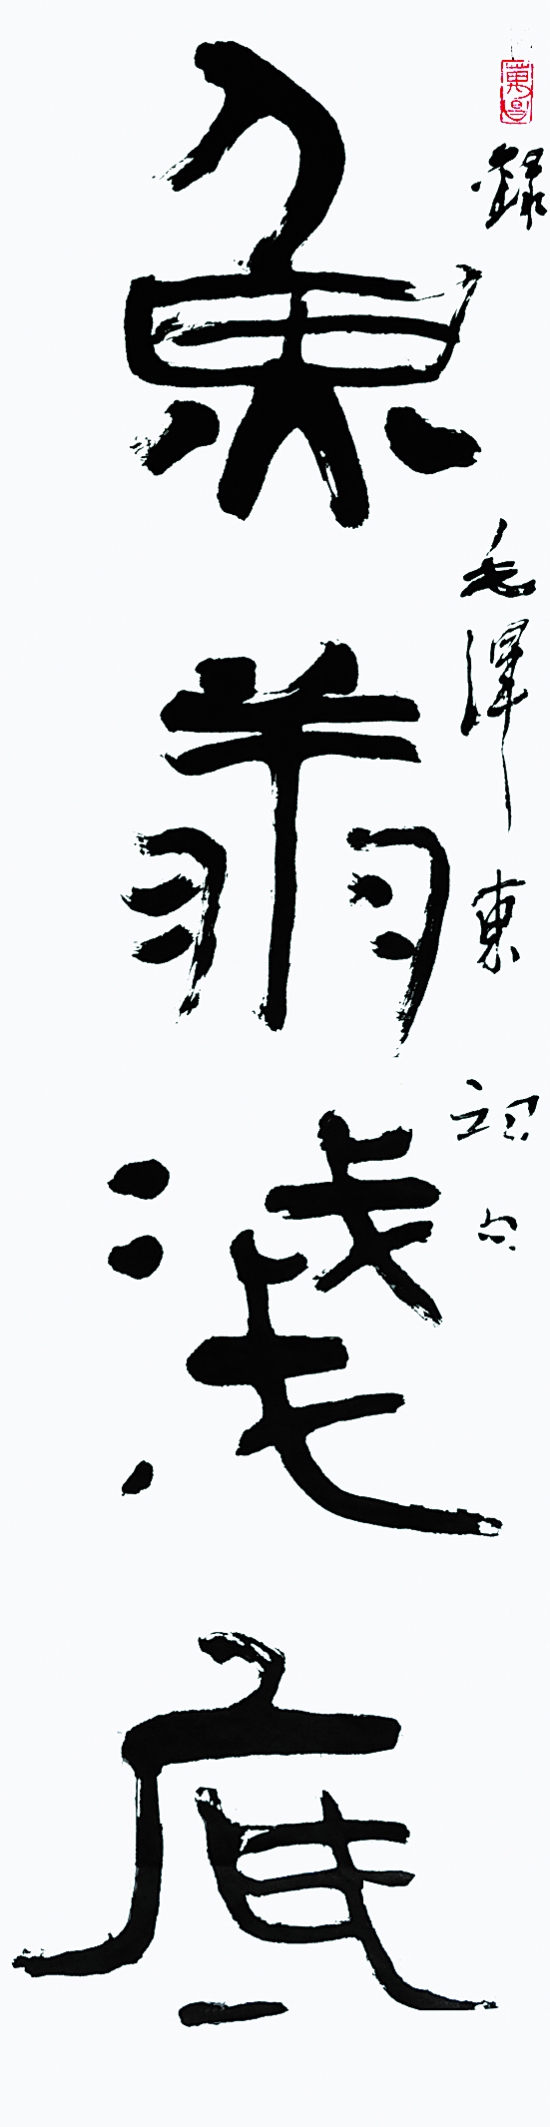 錄毛澤東詞句
魚翔淺底